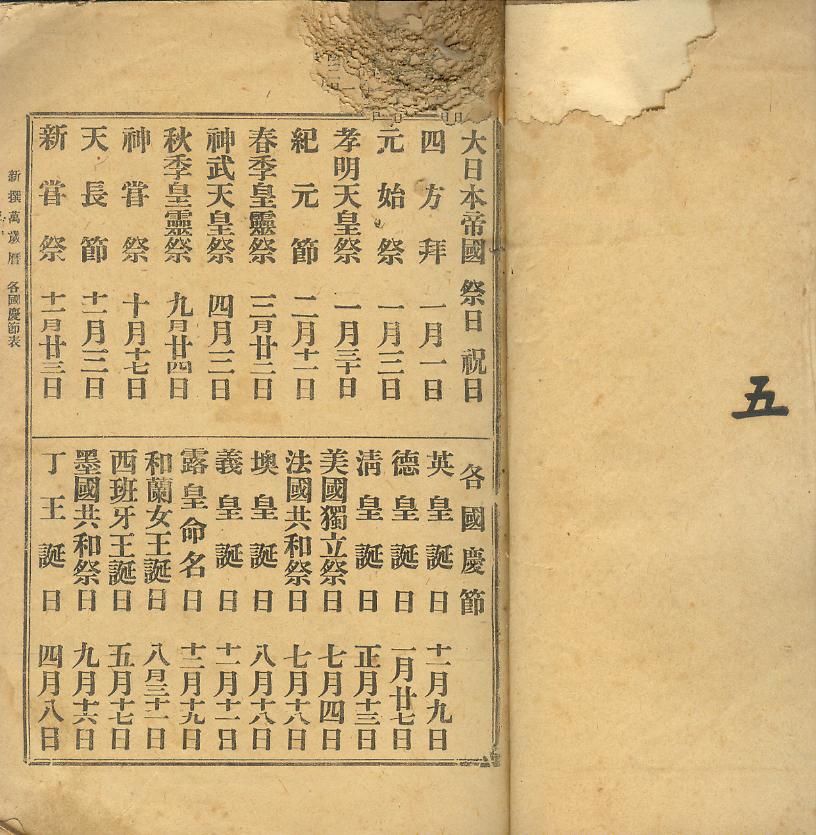 五
大日本帝國 祭日 祝日
四方拜 一月一日
元始祭 一月三日
孝明天皇祭 一月三十日
紀元節 二月十一日
春季皇靈祭 三月廿二日
神武天皇祭 四月三日
秋季皇靈祭 九月廿四日
神嘗祭 十月十七日
天長節 十一月三日
新嘗祭 十一月廿三日
各國慶節
英皇誕日 十一月九日
德皇誕日 一月廿七日
淸皇誕日 正月十三日
美國獨立祭日 七月四日
法國共和祭日 七月十八日
墺皇誕日 八月十八日
義皇誕日 十一月十一日
露皇命名日 十二月十九日
和蘭女王誕日 八月三十一日
西班牙王誕日 五月十七日
墨國共和祭日 九月十六日
丁王誕日 四月八日
新撰萬歲曆 各國慶節表